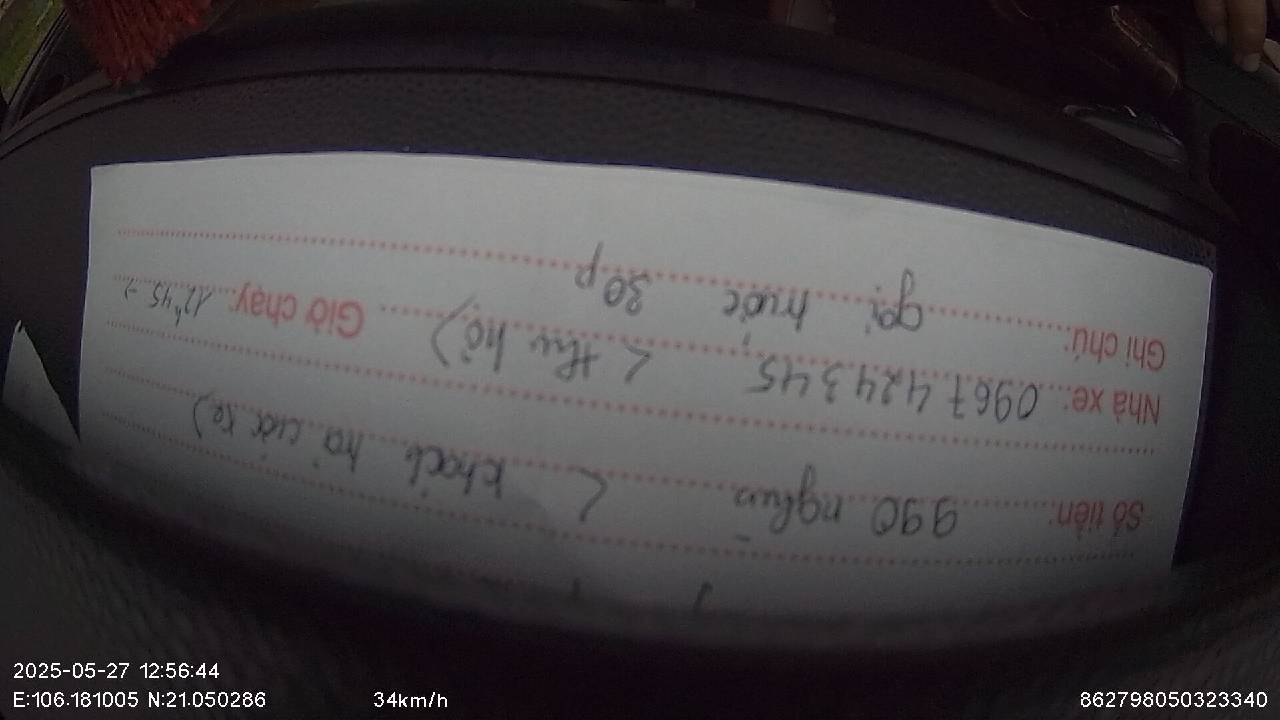 Số tiền: 990 nghìn < khách trả cước xe)
Nhà xe: 0967 424 345, < thu hộ) Giờ chạy: 12h45 -)
Ghi chú: gọi trước 30p
2025-05-27 12:56:44
E:106.181005 N:21.050286 34km/h 862798050323340